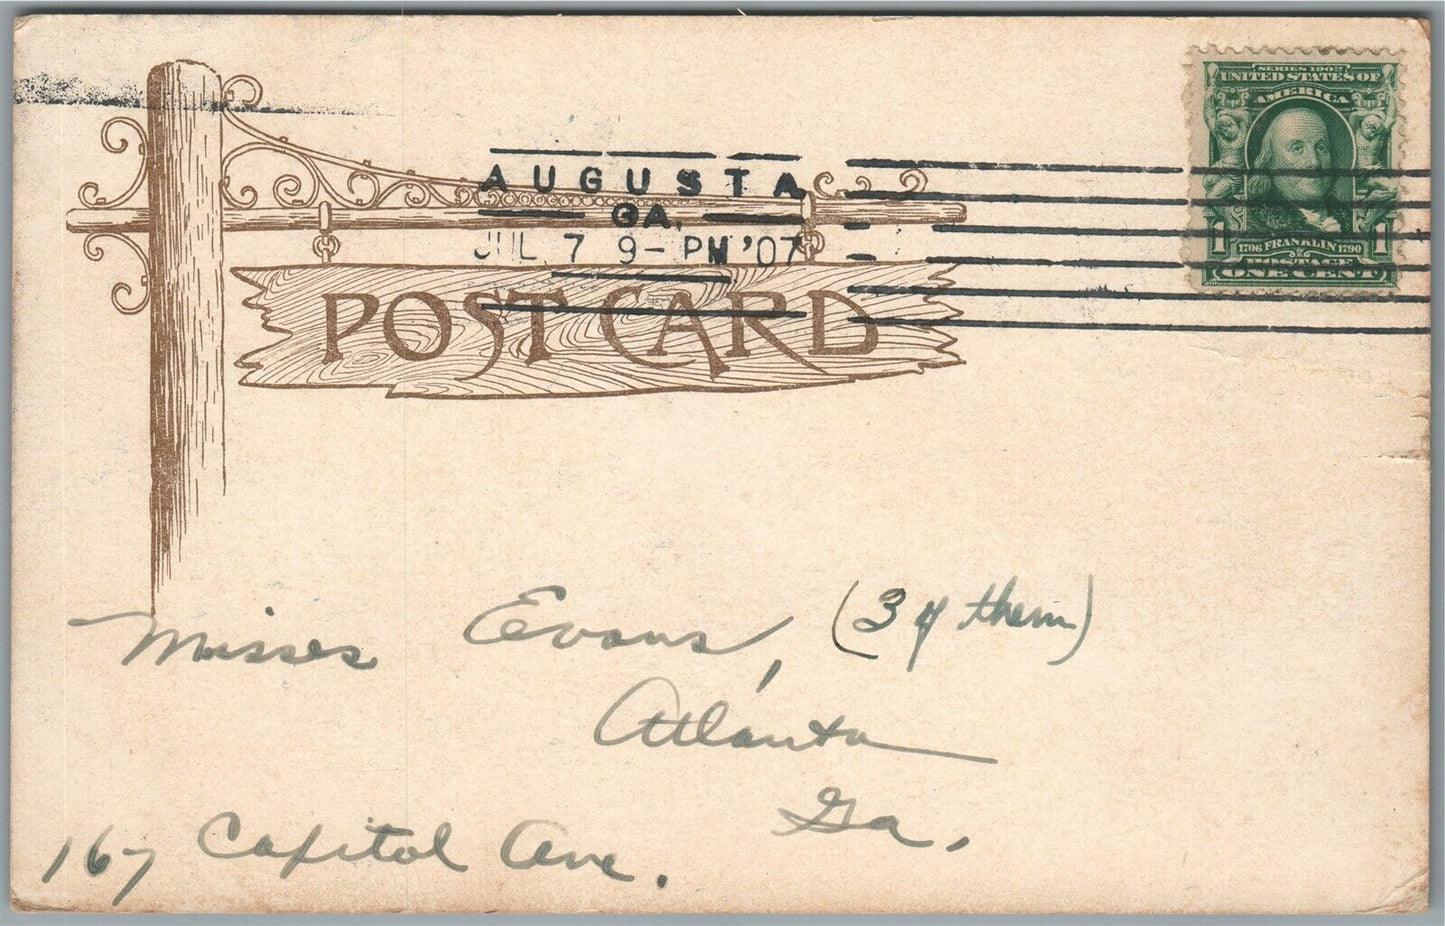 SERIES 1902
UNITED STATES OF
AMERICA
1 1
1706 FRANKLIN 1790
POSTAGE
ONE CENT
AUGUSTA
GA.
JUL 7 9-PM '07
POST CARD
Misses Evans, (3 of them)
Atlanta
Ga.
167 Capitol Ave.